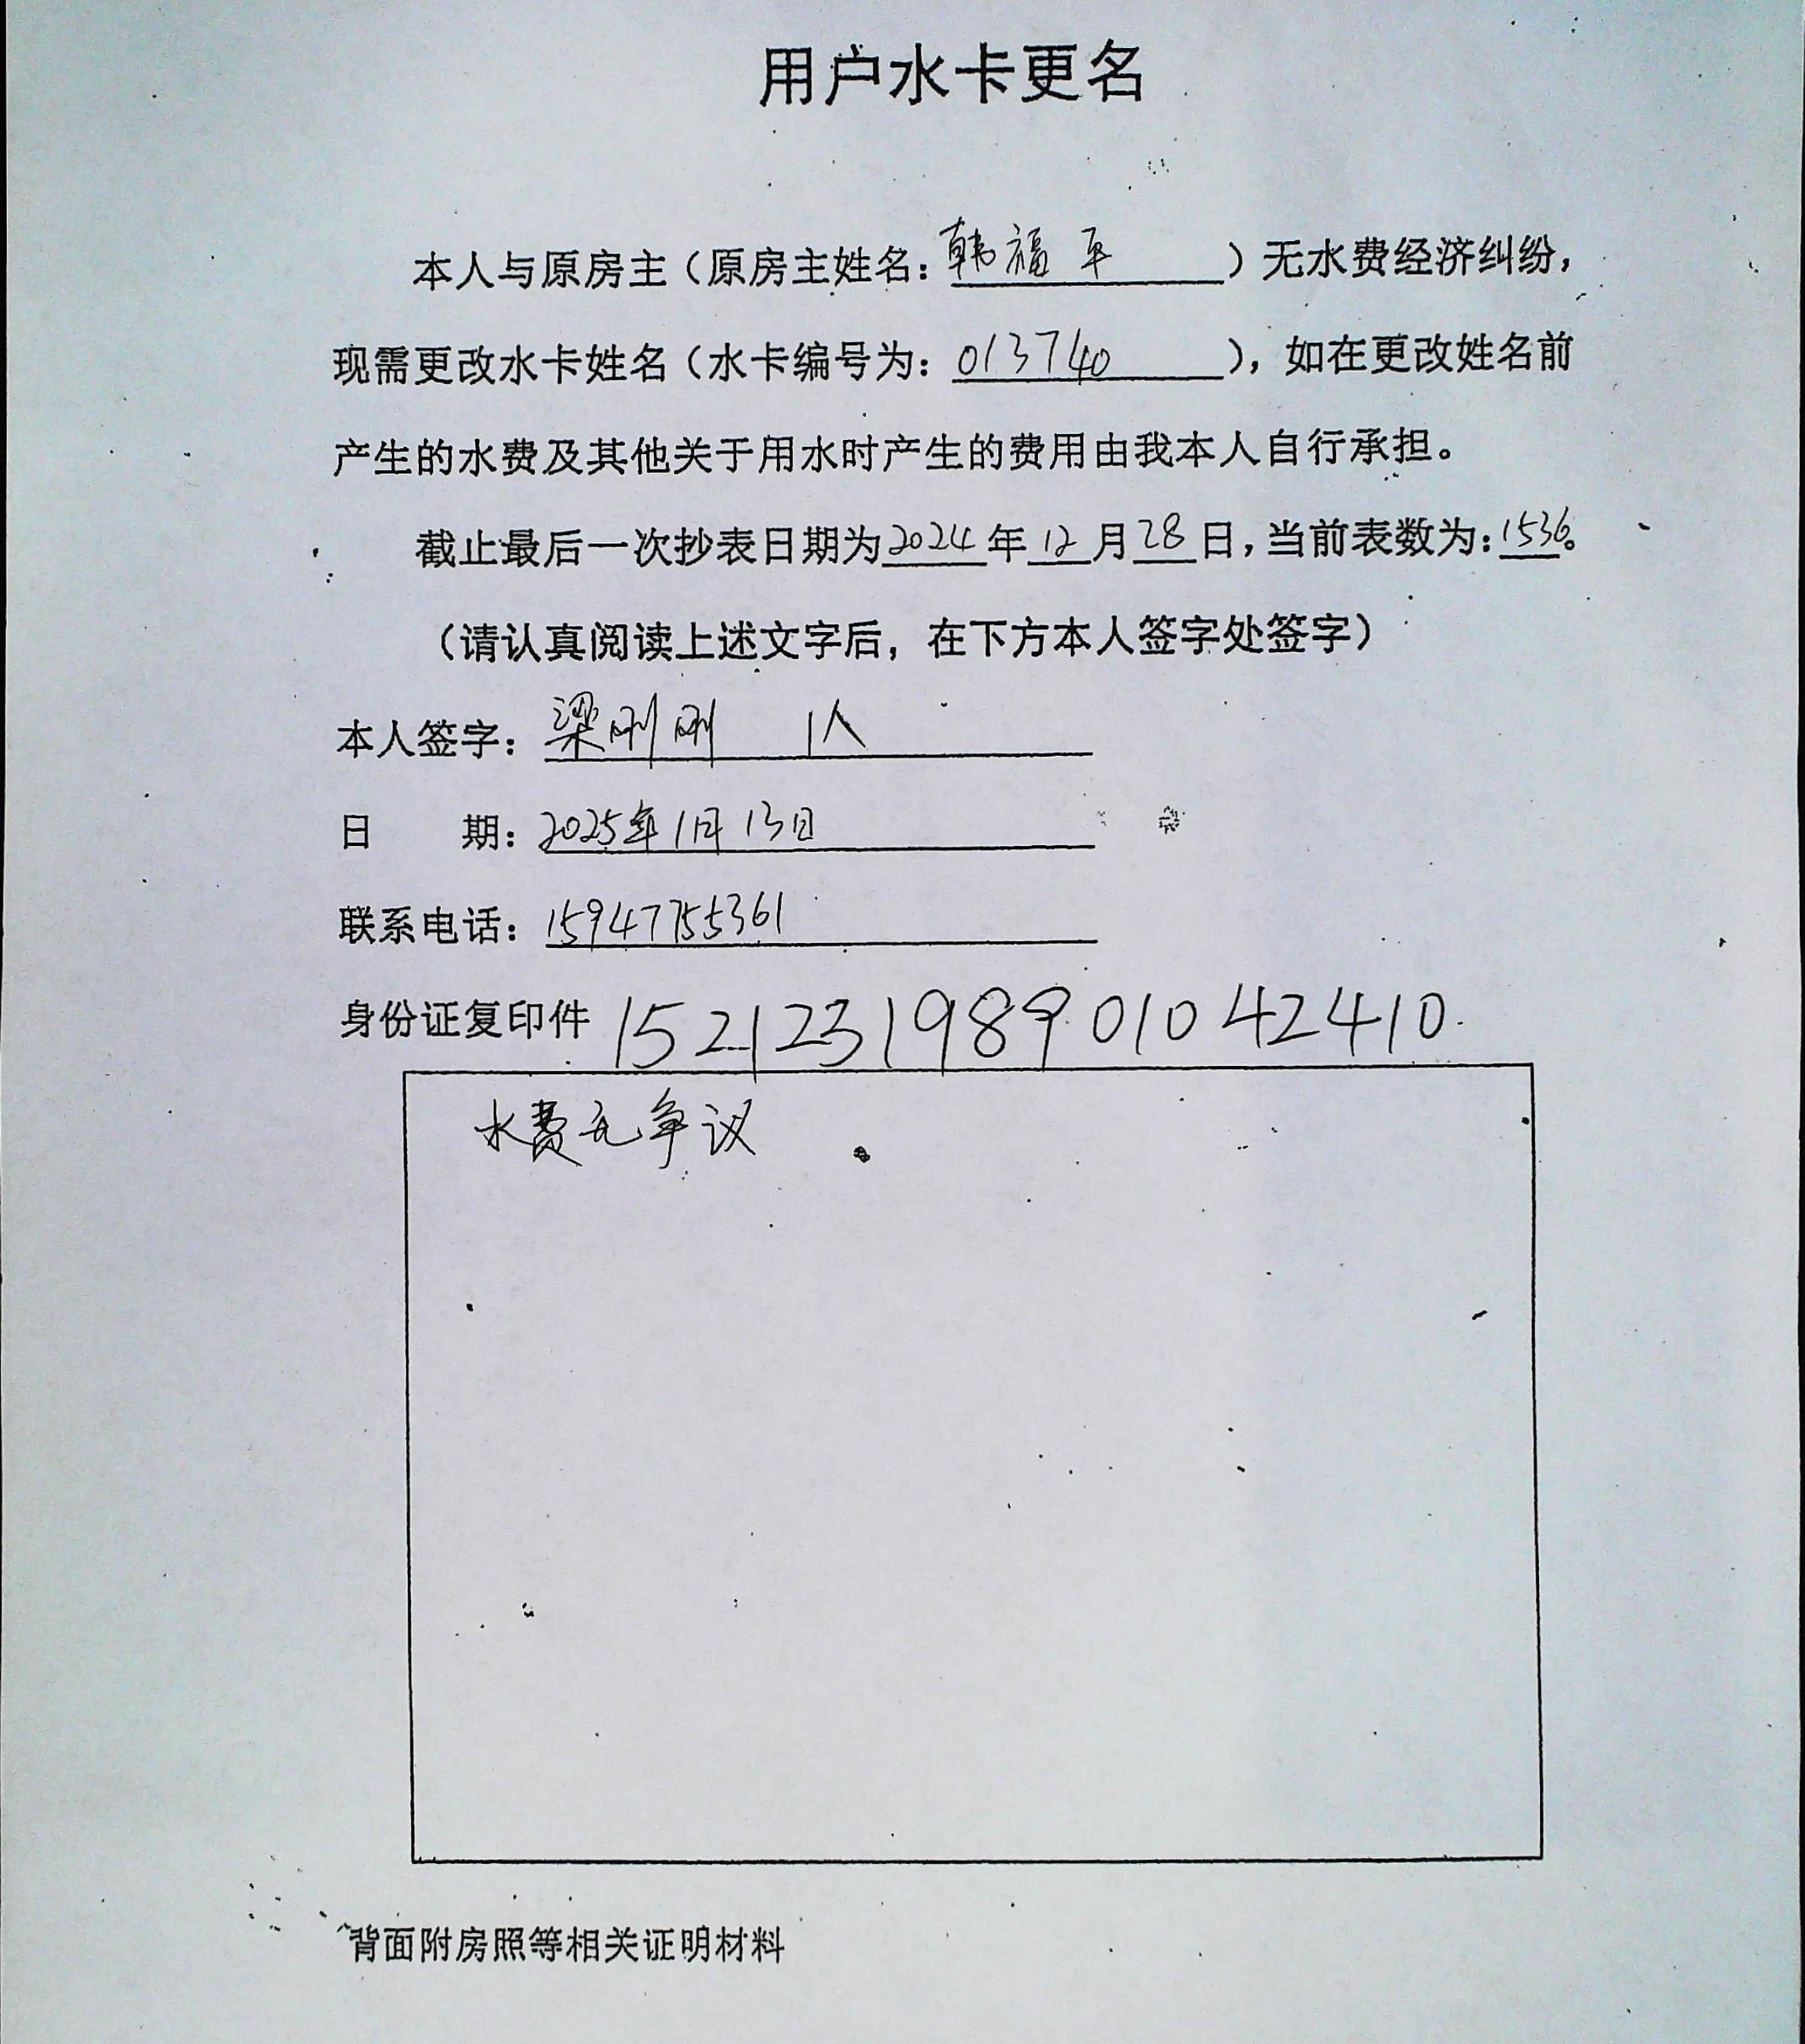 用户水卡更名
本人与原房主（原房主姓名：韩福平）无水费经济纠纷，
现需更改水卡姓名（水卡编号为：013740），如在更改姓名前
产生的水费及其他关于用水时产生的费用由我本人自行承担。
截止最后一次抄表日期为2024年12月28日，当前表数为：1536。
（请认真阅读上述文字后，在下方本人签字处签字）
本人签字：梁刚刚 1人
日 期：2025年1月13日
联系电话：15947755361
身份证复印件 152123198901042410
水费无争议
背面附房照等相关证明材料